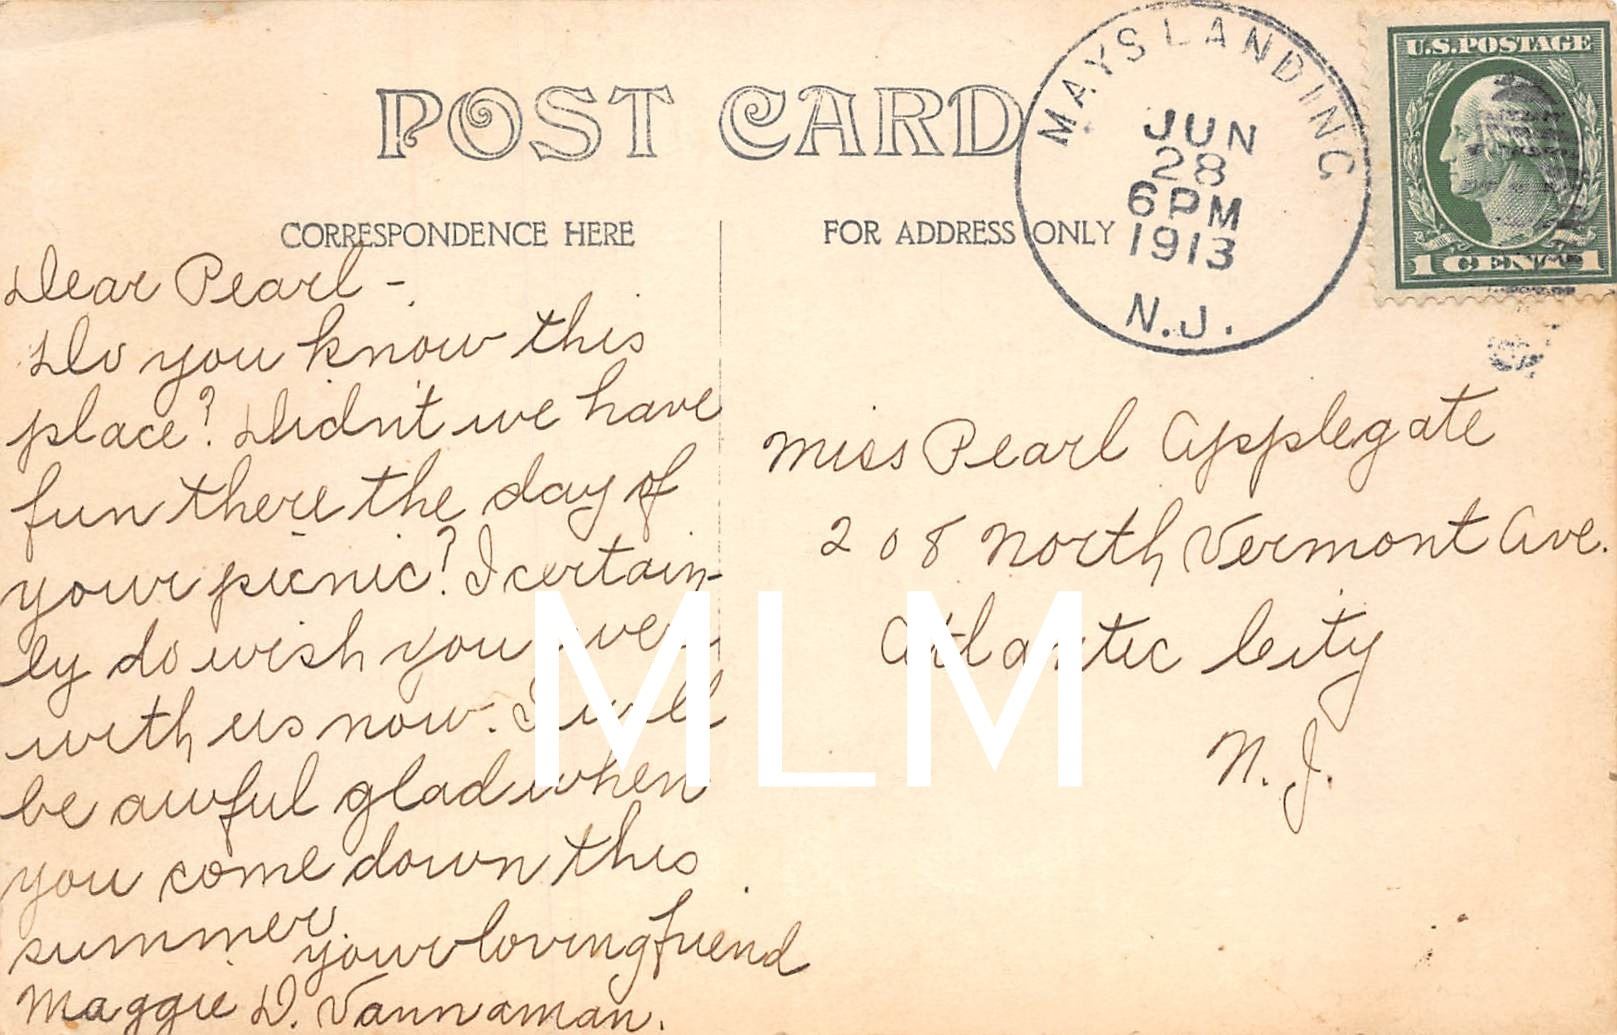 POST CARD
CORRESPONDENCE HERE
FOR ADDRESS ONLY
MAYS LANDING
JUN
28
6 PM
1913
N.J.
U.S. POSTAGE
1 CENT 1
Dear Pearl -
Do you know this
place? Didn't we have
fun there the day of
your picnic? I certain-
ly do wish you were
with us now. I will
be awful glad when
you come down this
summer
your loving friend
Maggie D. Vannaman.
Miss Pearl Applegate
208 North Vermont Ave.
Atlantic City
N. J.
MLM